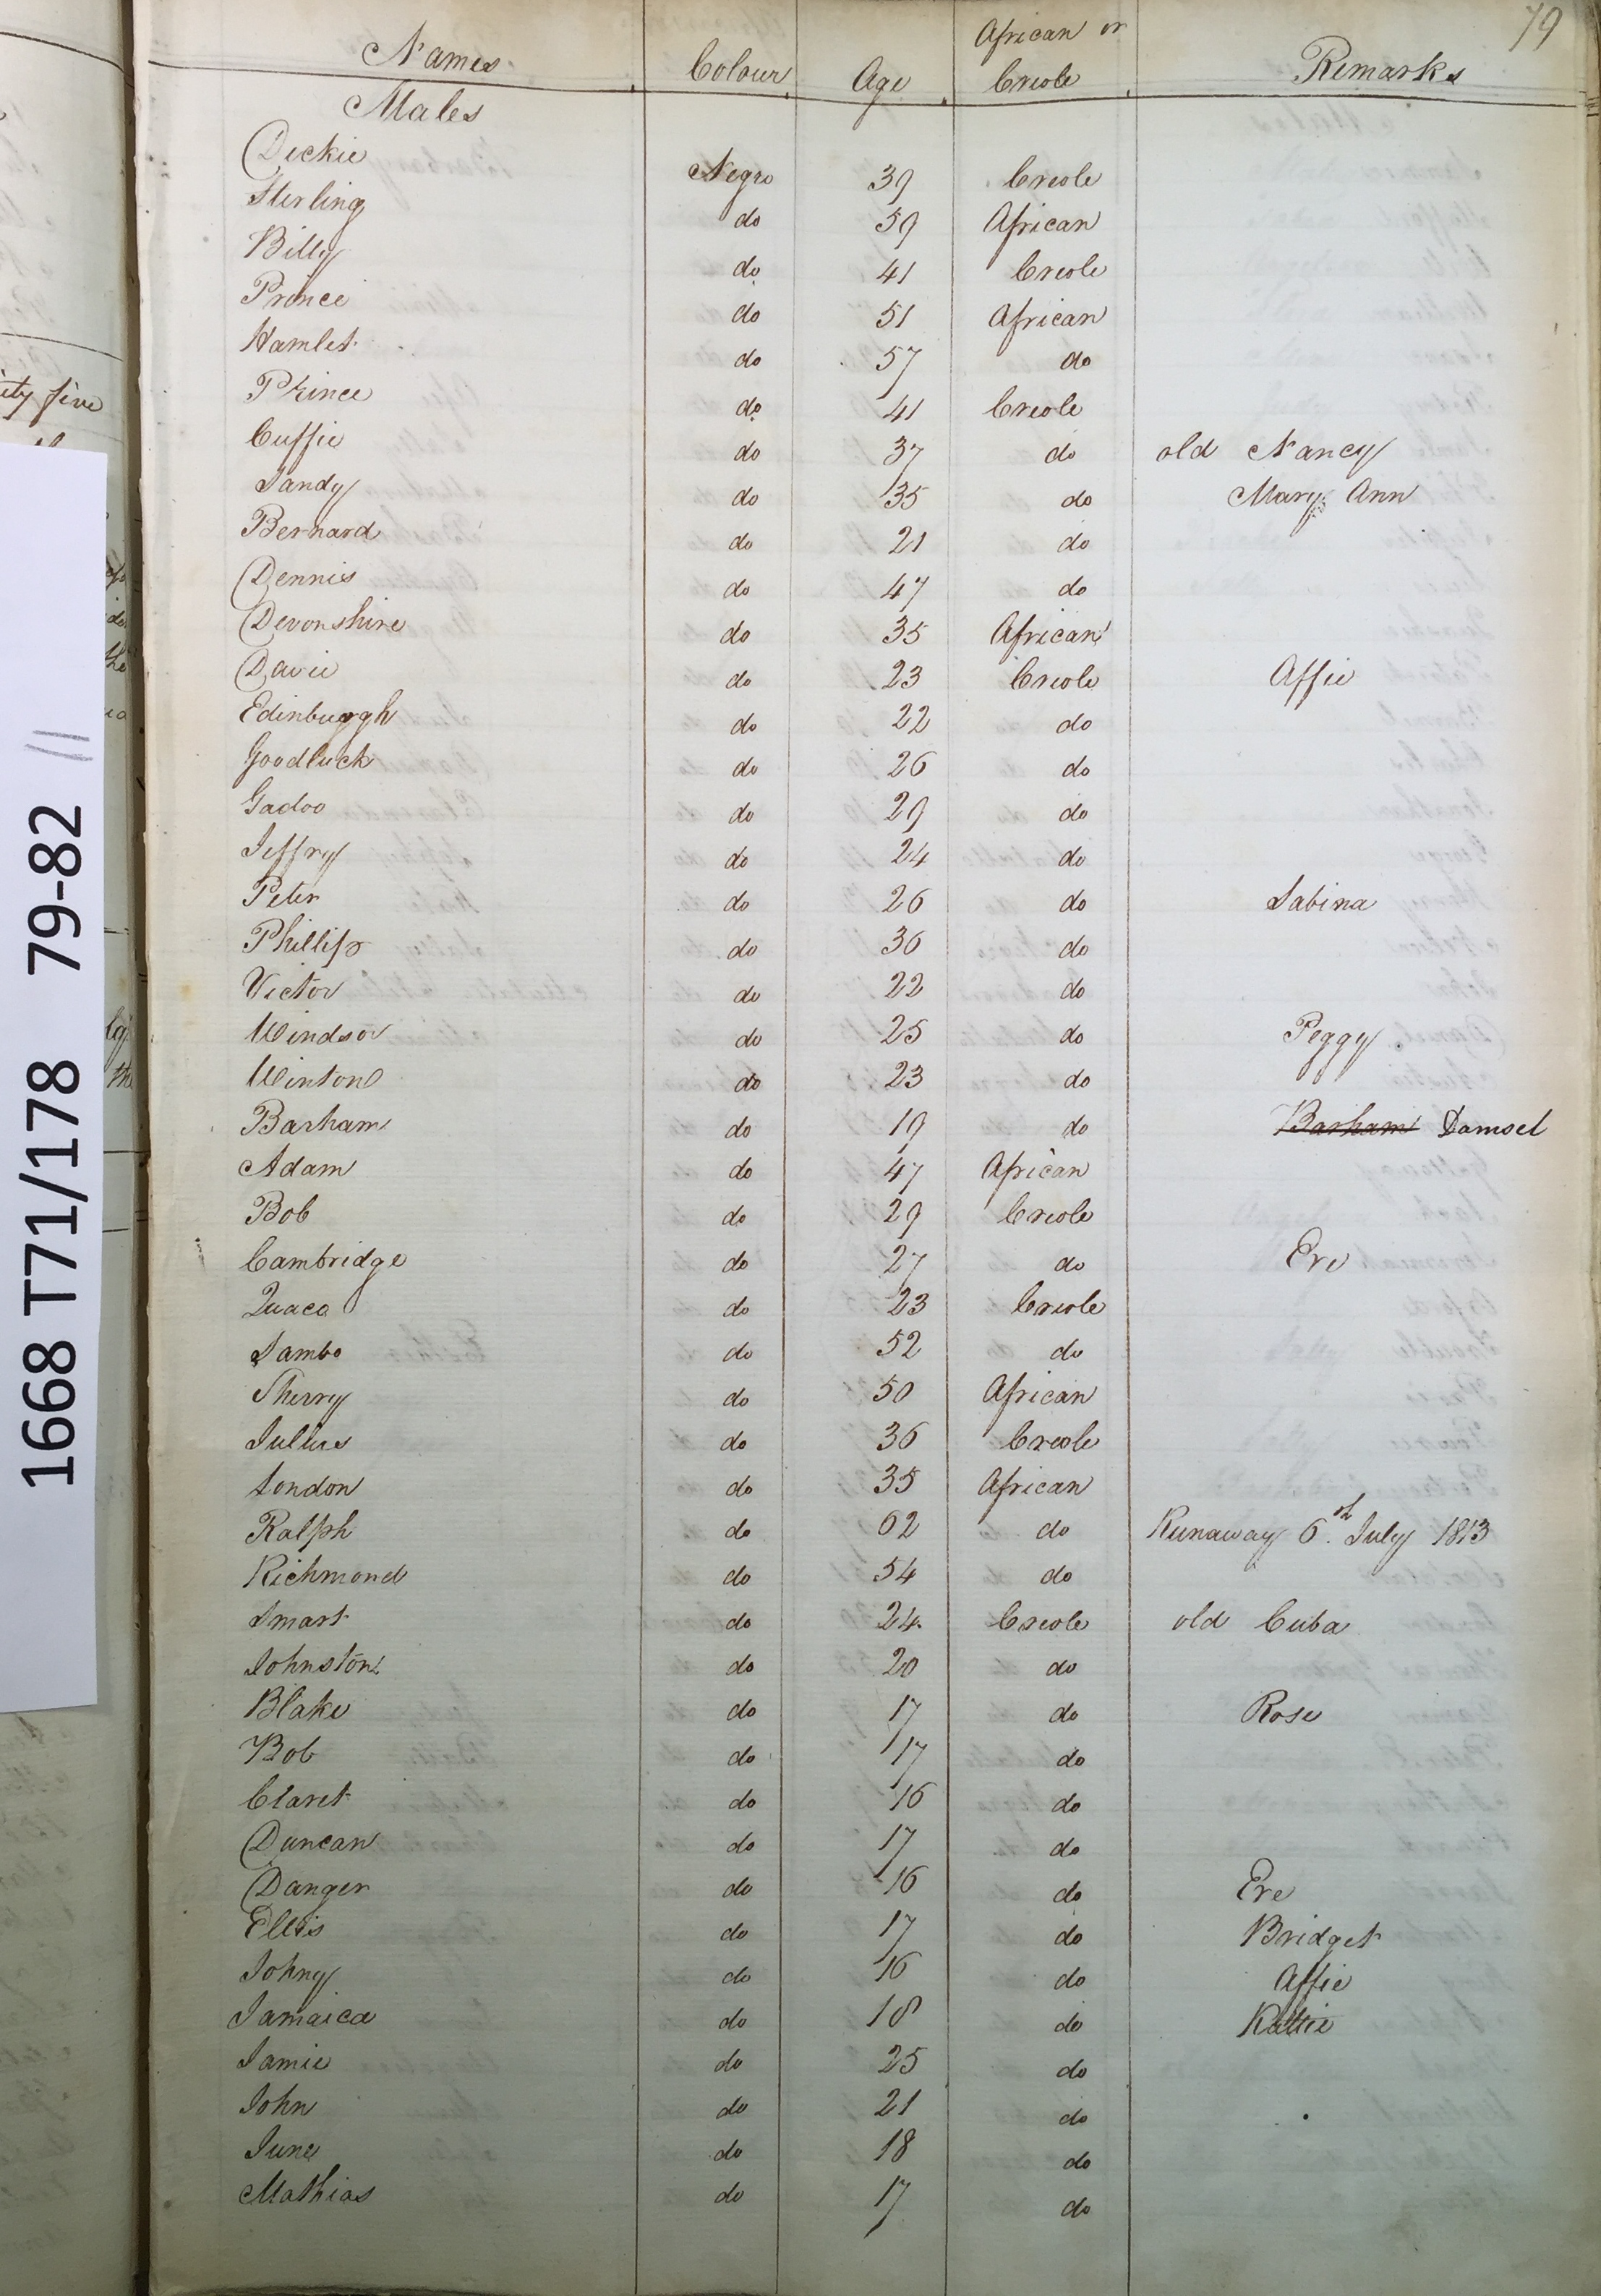 79
Names Colour Age African or Creole Remarks
Males
Dickie Negro 39 Creole
Sterling do 59 African
Billy do 41 Creole
Prince do 51 African
Hamlet do 57 do
Prince do 41 Creole
Cuffie do 37 do old Nancy
Sandy do 35 do Mary Ann
Bernard do 21 do
Dennis do 47 do
Devonshire do 35 African
Davie do 23 Creole Affie
Edinburgh do 22 do
Goodluck do 26 do
Gadoo do 29 do
Jeffry do 24 do
Peter do 26 do Sabina
Phillip do 36 do
Victor do 22 do
Windsor do 25 do Peggy
Winton do 23 do
Barham do 19 do Barham Damsel
Adam do 47 African
Bob do 29 Creole
Cambridge do 27 do Eve
Quaco do 23 Creole
Sambo do 52 do
Sherry do 50 African
Julius do 36 Creole
London do 35 African
Ralph do 62 do Runaway 6th July 1813
Richmond do 54 do
Smart do 24 Creole old Cuba
Johnston do 20 do
Blake do 17 do Rose
Bob do 17 do
Claret do 16 do
Duncan do 17 do
Danger do 16 do Eve
Ellis do 17 do Bridget
Johny do 16 do Affie
Jamaica do 18 do Kattie
Jamie do 25 do
John do 21 do
June do 18 do
Mathias do 17 do
ity five
the
1668 T71/178 79-82 //